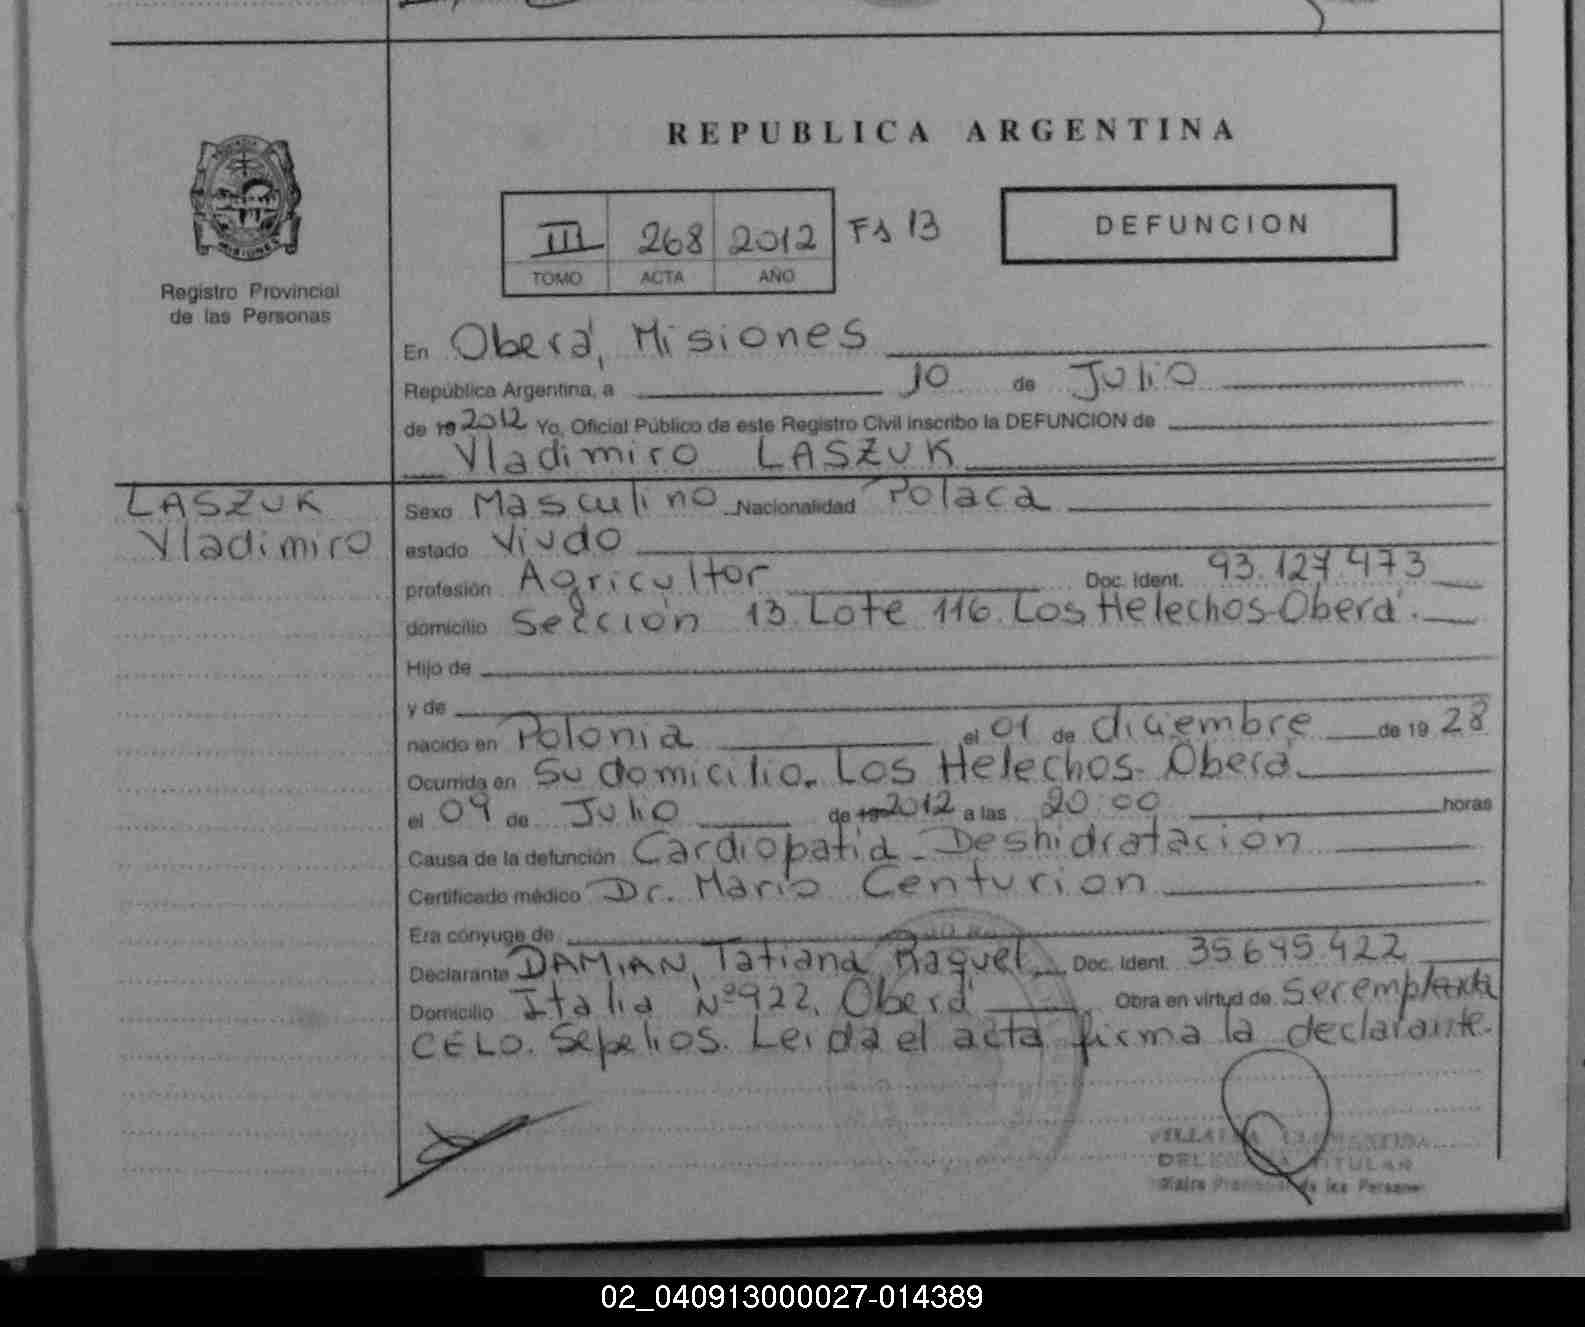 REPUBLICA ARGENTINA
III 268 2012 Fs 13
TOMO ACTA AÑO
DEFUNCION
MISIONES
Registro Provincial
de las Personas
En Oberá, Misiones
República Argentina, a 10 de Julio
de 19 2012 Yo, Oficial Público de este Registro Civil inscribo la DEFUNCION de
Vladimiro LASZUK
LASZUK
Vladimiro
Sexo Masculino Nacionalidad Polaca
estado Viudo
profesión Agricultor Doc. Ident. 93.127.473
domicilio Sección 13. Lote 116. Los Helechos-Oberá.
Hijo de
y de
nacido en Polonia el 01 de diciembre de 19 28
Ocurrida en Su domicilio. Los Helechos- Oberá
el 09 de Julio de 19 2012 a las 20:00 horas
Causa de la defunción Cardiopatia - Deshidratación
Certificado médico Dr. Mario Centurion
Era cónyuge de
Declarante DAMIAN, Tatiana Raquel Doc. Ident. 35.695.422
Domicilio Italia Nº922. Oberá Obra en virtud de Ser
CELO. Sepelios. Leida el acta firma la declarante.
TITULAR
de las Personas
02_040913000027-014389